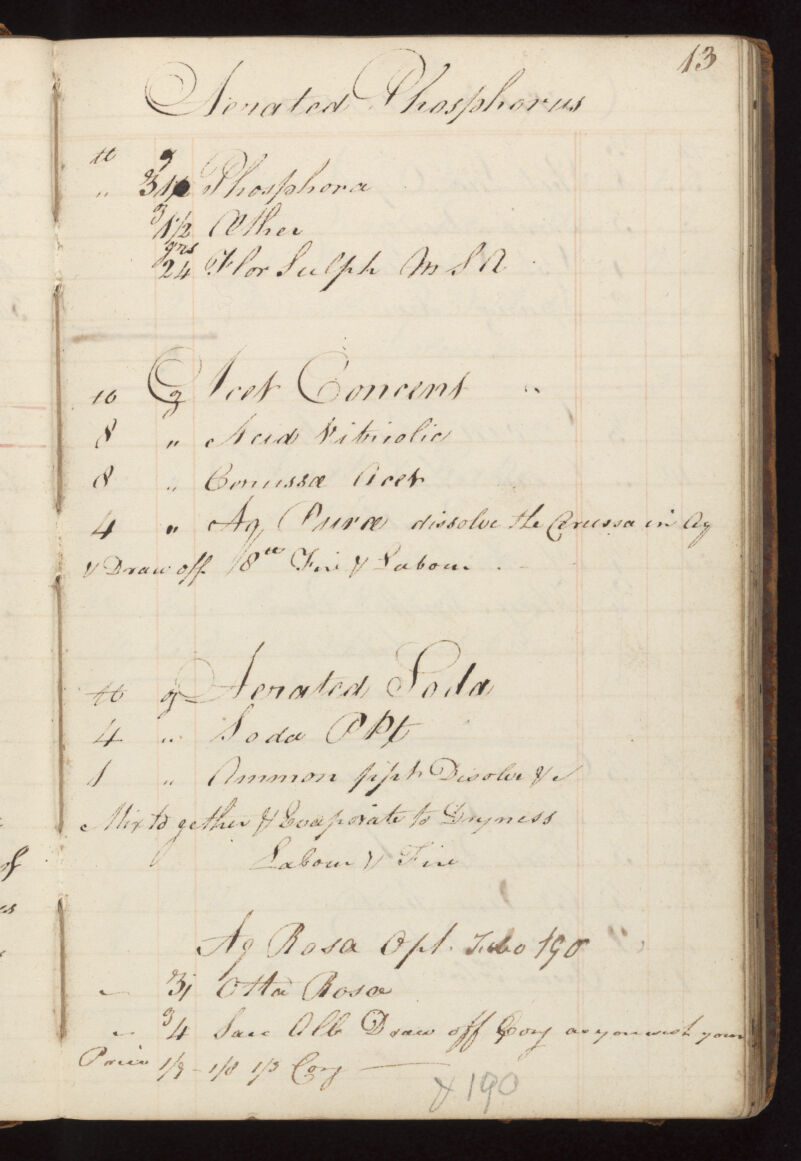 13
Aerated Phosphorus
℔ ℥
" ʒ1½ Phosphora
ʒ 1½ Æther
grs 24 Flor Sulph M S A
Acet Concent "
10 ℥
8 " Acid Vitriolic
8 " Cerussæ Acet
4 " Aq Puræ dissolve the Cerussa in Aq
& Draw off 8 Fire & Labour
Aerated Soda
℔ ℥
4 " Soda PPt
1 " Ammon ppt Disolve &
Mix to gether & Evaporate to Dryness
Labour & Fire
Aq Rosa Opt. Folio 190
ʒ1 Otta Rosæ
℥4 Sacc Alb Draw off Cong as you wish your
Price 1/9 - 1/8 1/3 Cong
& 190